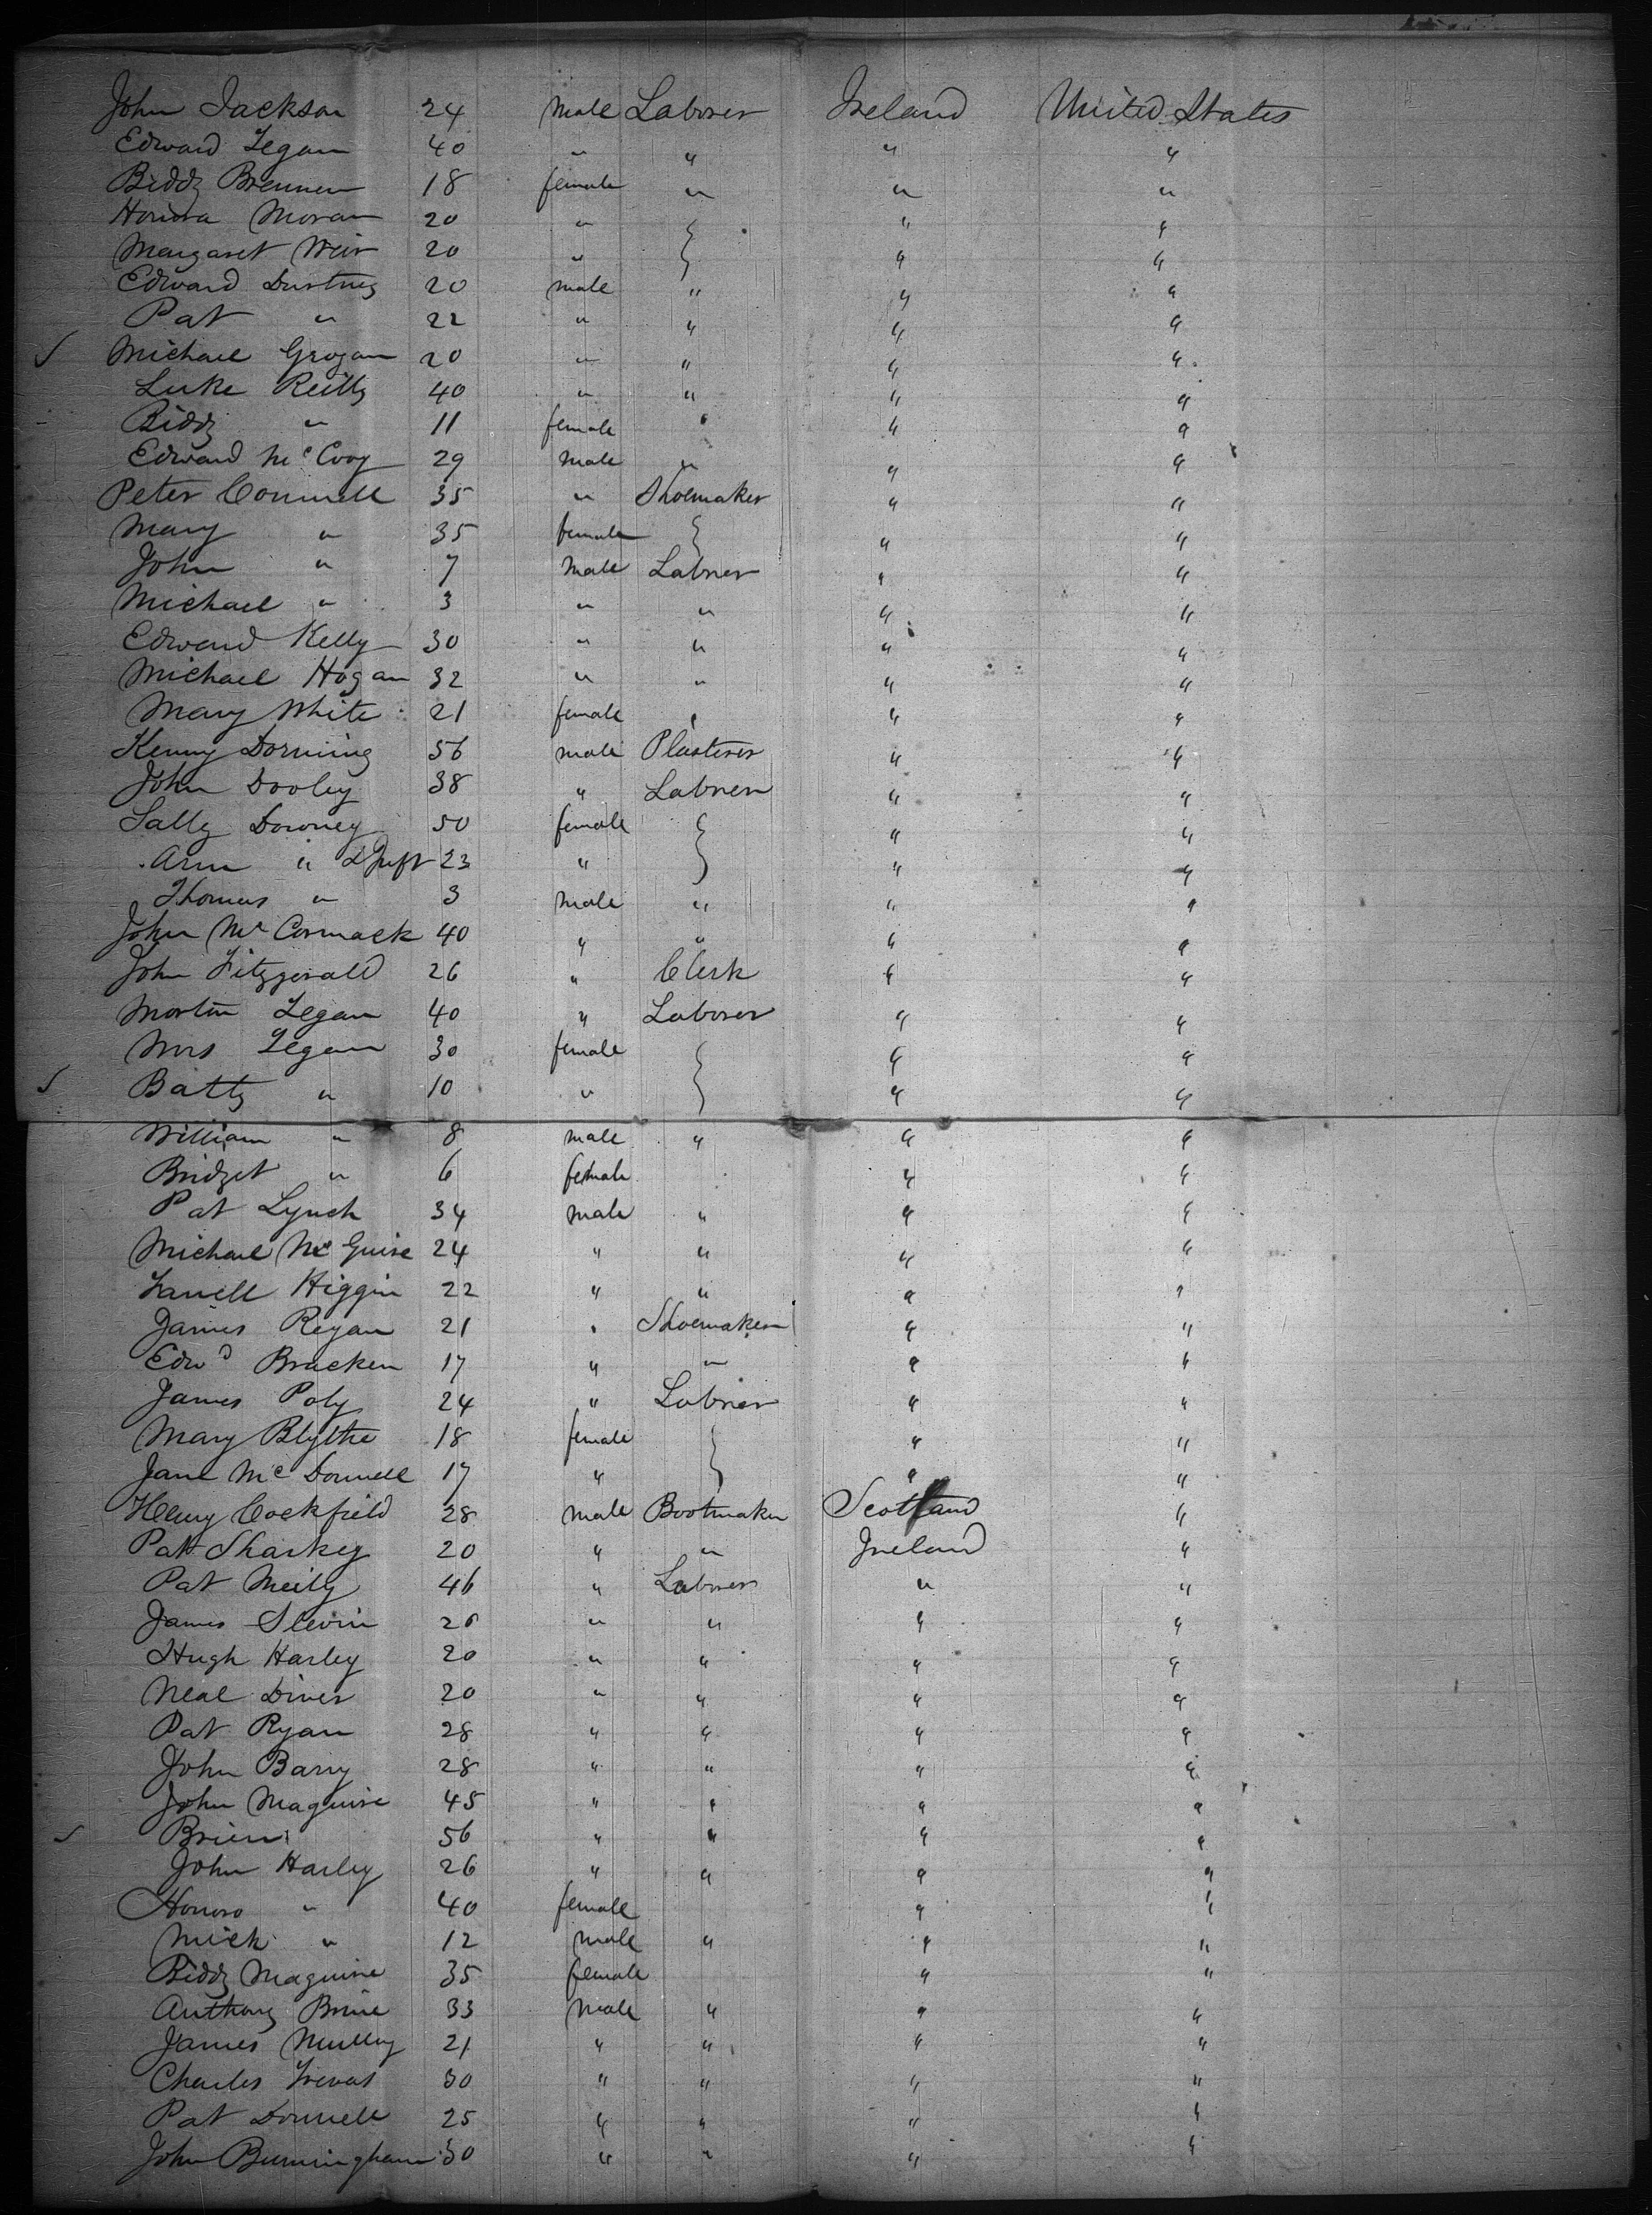 John Jackson 24 Male Laborer Ireland United States
Edward Legan 40 " " " "
Biddy Brennen 18 female " " "
Honora Moran 20 " } " "
Margaret Weir 20 " } " "
Edward 20 male " " "
Pat " 22 " " " "
✓ Michael Grogan 20 " " " "
Luke Reilly 40 " " " "
Biddy " 11 female " " "
Edward McCoog 29 Male " " "
Peter Connell 35 " Shoemaker " "
Mary " 35 female } " "
John " 7 Male Laborer " "
Michael " 3 " " " "
Edward Kelly 30 " " " "
Michael Hogan 32 " " " "
Mary White 21 female " " "
Kenny Dorning 56 male Plasterer " "
John Dooley 38 " Laborer " "
Sally Downey 50 female } " "
Ann " & Inft 23 " } " "
Thomas " 3 Male " " "
John McCormack 40 " " " "
John Fitzgerald 26 " Clerk " "
Morton Legan 40 " Laborer " "
Mrs Legan 30 female } " "
✓ Batty " 10 " } " "
William " 8 male " " "
Bridget " 6 female " "
Pat Lynch 34 male " " "
Michael McGuire 24 " " " "
Farrell Higgin 22 " " " "
James Regan 21 " Shoemaker " "
Edwd Bracken 17 " " " "
James Poly 24 " Laborer " "
Mary Blythe 18 female } " "
Jane McDonnell 17 " } " "
Henry Cockfield 28 male Bootmaker Scotland "
Pat Sharkey 20 " " Ireland "
Pat Meily 46 " Laborer " "
James Slevin 26 " " " "
Hugh Harley 20 " " " "
Neal Diver 20 " " " "
Pat Ryan 28 " " " "
John Barry 28 " " " "
John Maguire 45 " " " "
✓ Brien 56 " " " "
John Harley 26 " " " "
Honoro " 40 female " "
Mick " 12 male " " "
Biddy Maguire 35 female " "
Anthony Brine 33 Male " " "
James Mulley 21 " " " "
Charles 30 " " " "
Pat Donnell 25 " " " "
John Burmingham 30 " " " "